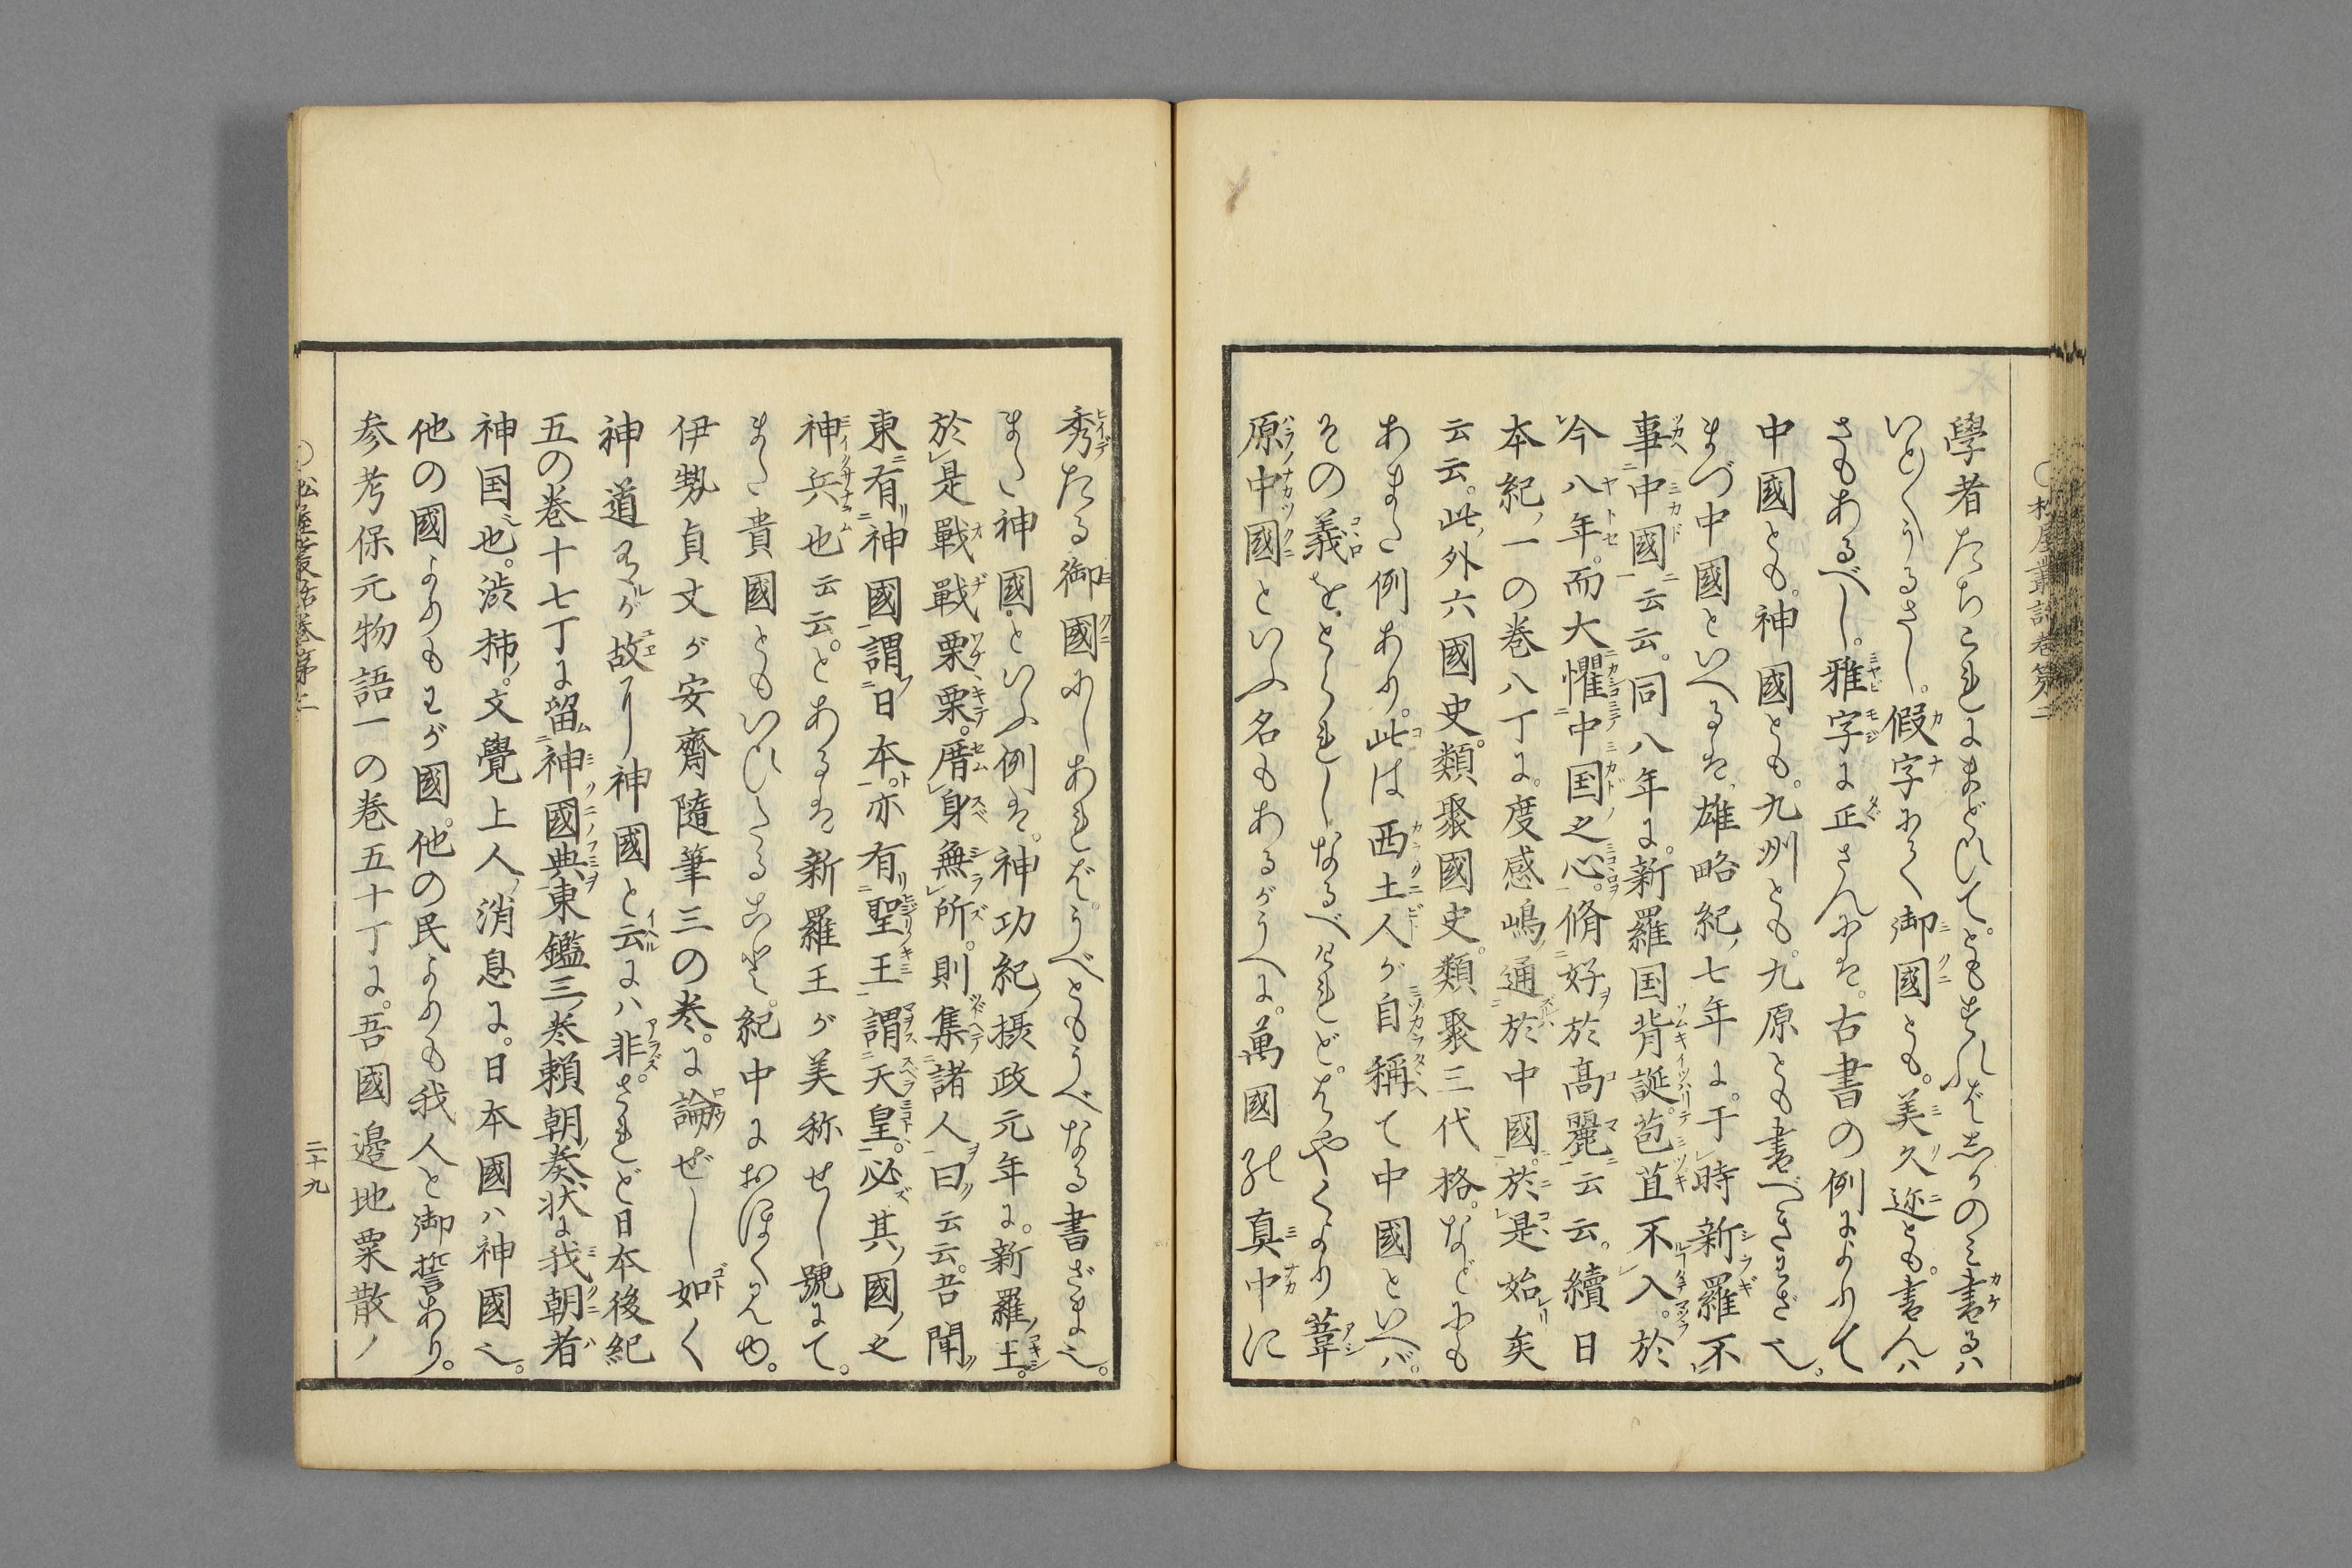 學者たちこれにまどひて。ともすればしかのミ書るハ
いと〳〵うるさし。假字にて御國とも。美久迩とも。書んハ
さもあるべし。雅字に正さんには。古書の例によりて
中國とも。神國とも。九州とも。九原とも書べきわざ也。
まづ中國といへるは、雄略紀、七年に。于時新羅不
事中國云云。同八年に。新羅国背誕。苞苴不入。於
今八年。而大懼中国之心。脩好於高麗云云。續日
本紀、一の巻八丁に。度感嶋、通於中國。於是始矣
云云。此外六國史。類聚國史。類聚三代格。などにも
あまた例あり。此は西土人が自稱て中國といへバ。
その義を。とられしなるべけれど。はやくより葦
原中國といふ名もあるがうへに。萬國の真中に
松屋叢話巻第二
秀たる御國にしあれば。うべともうべなる書ざま也。
また神國。といふ例は。神功紀、摂政元年に。新羅王。
於是戰戰栗栗。厝身無所。則集諸人曰云云。吾聞
東有神國謂日本。亦有聖王謂天皇。必其國之
神兵也云云。とあるは新羅王が美称せし號にて。
また貴國ともいひたること。紀中におほく見ゆ。
伊勢貞丈が安齋隨筆三の巻。に論ぜし如く
神道有ルが故ニ神國と云にハ非ず。されど日本後紀
五の巻十七丁に留神國典東鑑三巻頼朝、奏状に我朝者
神国也。渋柿。文覺上人、消息に。日本國ハ神國也。
他の國よりもわが國。他の民よりも我人と御誓あり。
参考保元物語一の巻五十丁に。吾國邊地粟散ノ
松屋叢話巻第二
二十九